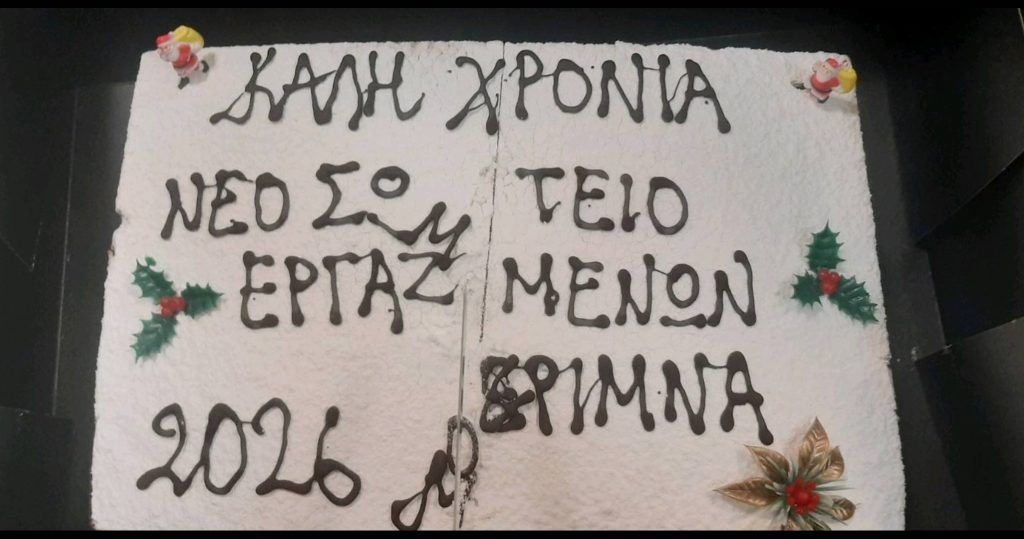 ΚΑΛΗ ΧΡΟΝΙΑ
ΝΕΟ ΣΩΜ ΤΕΙΟ
ΕΡΓΑΖ ΜΕΝΩΝ
2026